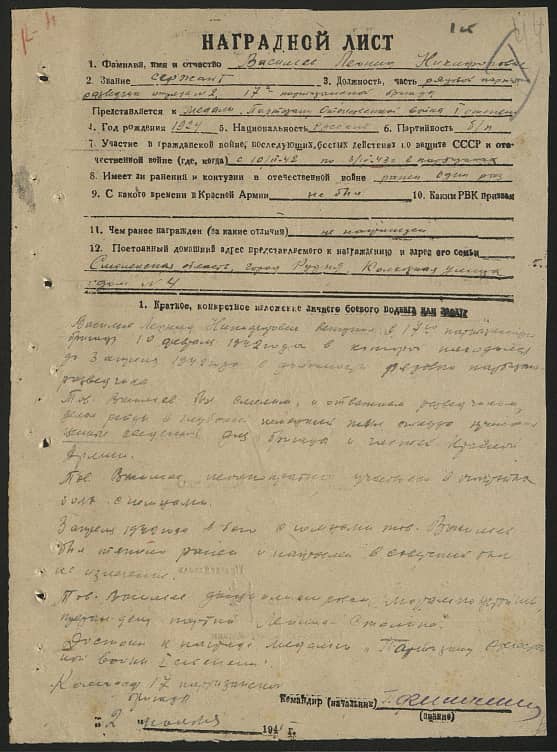 НАГРАДНОЙ ЛИСТ
1. Фамилия, имя и отчество Васильев Леонид Никифорович
2. Звание сержант 3. Должность, часть рядовой
разведчик отряда № 2, 17ой партизанской бригады
Представляется к Медали "Партизану Отечественной войны" I степени
4. Год рождения 1924 5. Национальность русский 6. Партийность б/п
7. Участие в гражданской войне, последующих боевых действиях по защите СССР и оте-
чественной войне (где, когда) с 10/II-42 по 3/
8. Имеет ли ранения и контузии в отечественной войне ранен один раз
9. С какого времени в Красной Армии не был 10. Каким РВК призван
11. Чем ранее награжден (за какие отличия) не
12. Постоянный домашний адрес представляемого к награждению и адрес его семьи
Смоленская область, город Рудня, улица
дом № 4
1. Краткое, конкретное изложение личного боевого подвига или заслуг
Васильев Леонид Никифорович вступил в 17ую партизанскую
бригаду 10 февраля 1942 года в которой находился
до 3 апреля в должности рядового
разведчика.
Тов. Васильев был смелым, и отважным разведчиком,
делал рейды в глубокий тыл откуда
сведения для бригады и частей Красной
Армии.
Тов. Васильев неоднократно участвовал в
с немцами.
3 апреля года в бою с немцами тов. Васильев
был ранен и направлен в советский тыл
на излечение.
Тов. Васильев дисциплинирован, морально устойчив,
предан делу партии Ленина-Сталина.
Достоин к награде медалью "Партизану Отечествен-
ной войны I степени".
Командир 17 партизанской
бригады
Командир (начальник)
(подпись)
"2" 194 г.